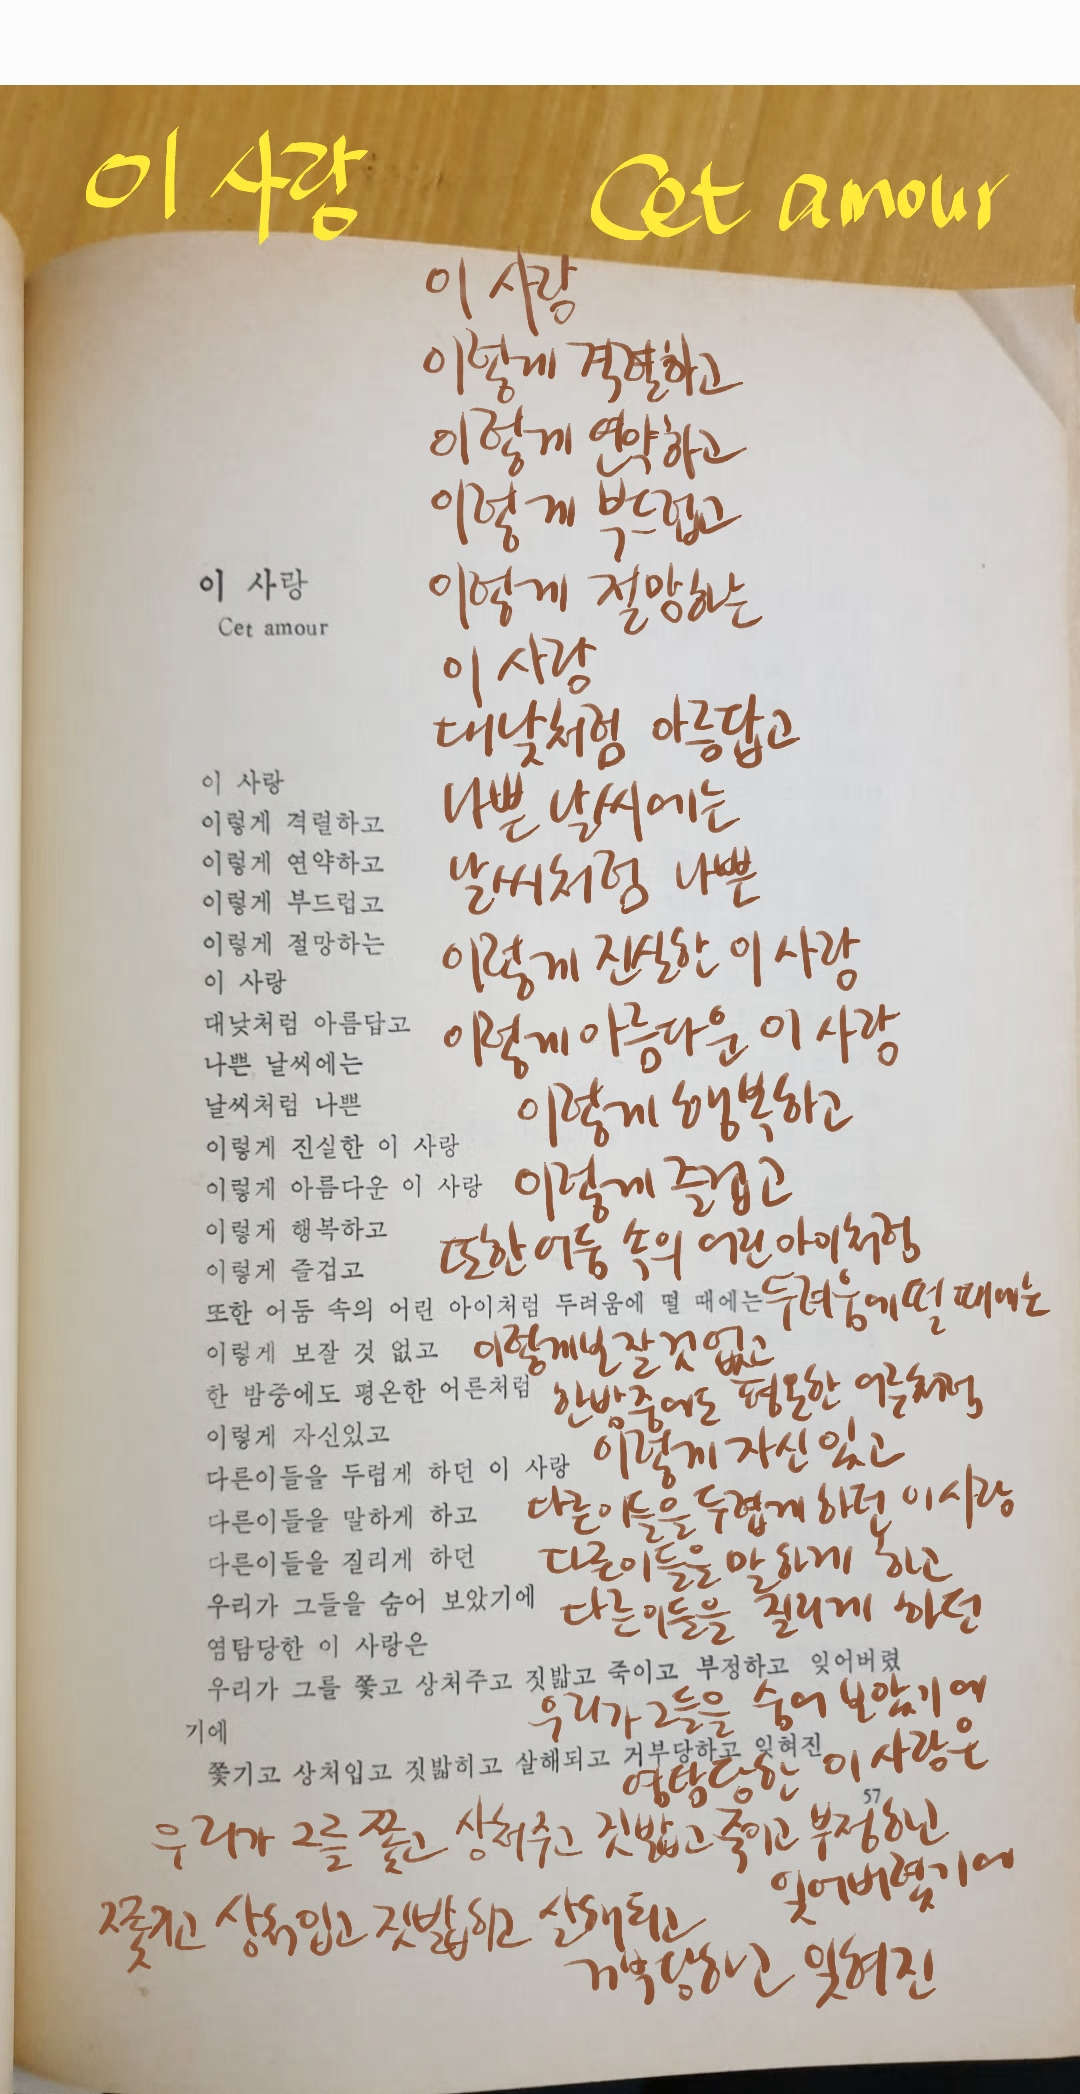 이 사랑 Cet amour
이 사랑
이렇게 격렬하고
이렇게 연약하고
이렇게 부드럽고
이렇게 절망하는
이 사랑
대낮처럼 아름답고
나쁜 날씨에는
날씨처럼 나쁜
이렇게 진실한 이 사랑
이렇게 아름다운 이 사랑
이렇게 행복하고
이렇게 즐겁고
또한 어둠 속의 어린 아이처럼
두려움에 떨 때에는
이렇게 보잘 것 없고
한 밤중에도 평온한 어른처럼
이렇게 자신있고
다른이들을 두렵게 하던 이 사랑
다른이들을 말하게 하고
다른이들을 질리게 하던
우리가 그들을 숨어 보았기에
염탐당한 이 사랑은
우리가 그를 쫓고 상처주고 짓밟고 죽이고 부정하고
잊어버렸기에
쫓기고 상처입고 짓밟히고 살해되고
거부당하고 잊혀진
이 사랑
Cet amour
이 사랑
이렇게 격렬하고
이렇게 연약하고
이렇게 부드럽고
이렇게 절망하는
이 사랑
대낮처럼 아름답고
나쁜 날씨에는
날씨처럼 나쁜
이렇게 진실한 이 사랑
이렇게 아름다운 이 사랑
이렇게 행복하고
이렇게 즐겁고
또한 어둠 속의 어린 아이처럼 두려움에 떨 때에는
이렇게 보잘 것 없고
한 밤중에도 평온한 어른처럼
이렇게 자신있고
다른이들을 두렵게 하던 이 사랑
다른이들을 말하게 하고
다른이들을 질리게 하던
우리가 그들을 숨어 보았기에
염탐당한 이 사랑은
우리가 그를 쫓고 상처주고 짓밟고 죽이고 부정하고 잊어버렸
기에
쫓기고 상처입고 짓밟히고 살해되고 거부당하고 잊혀진
57